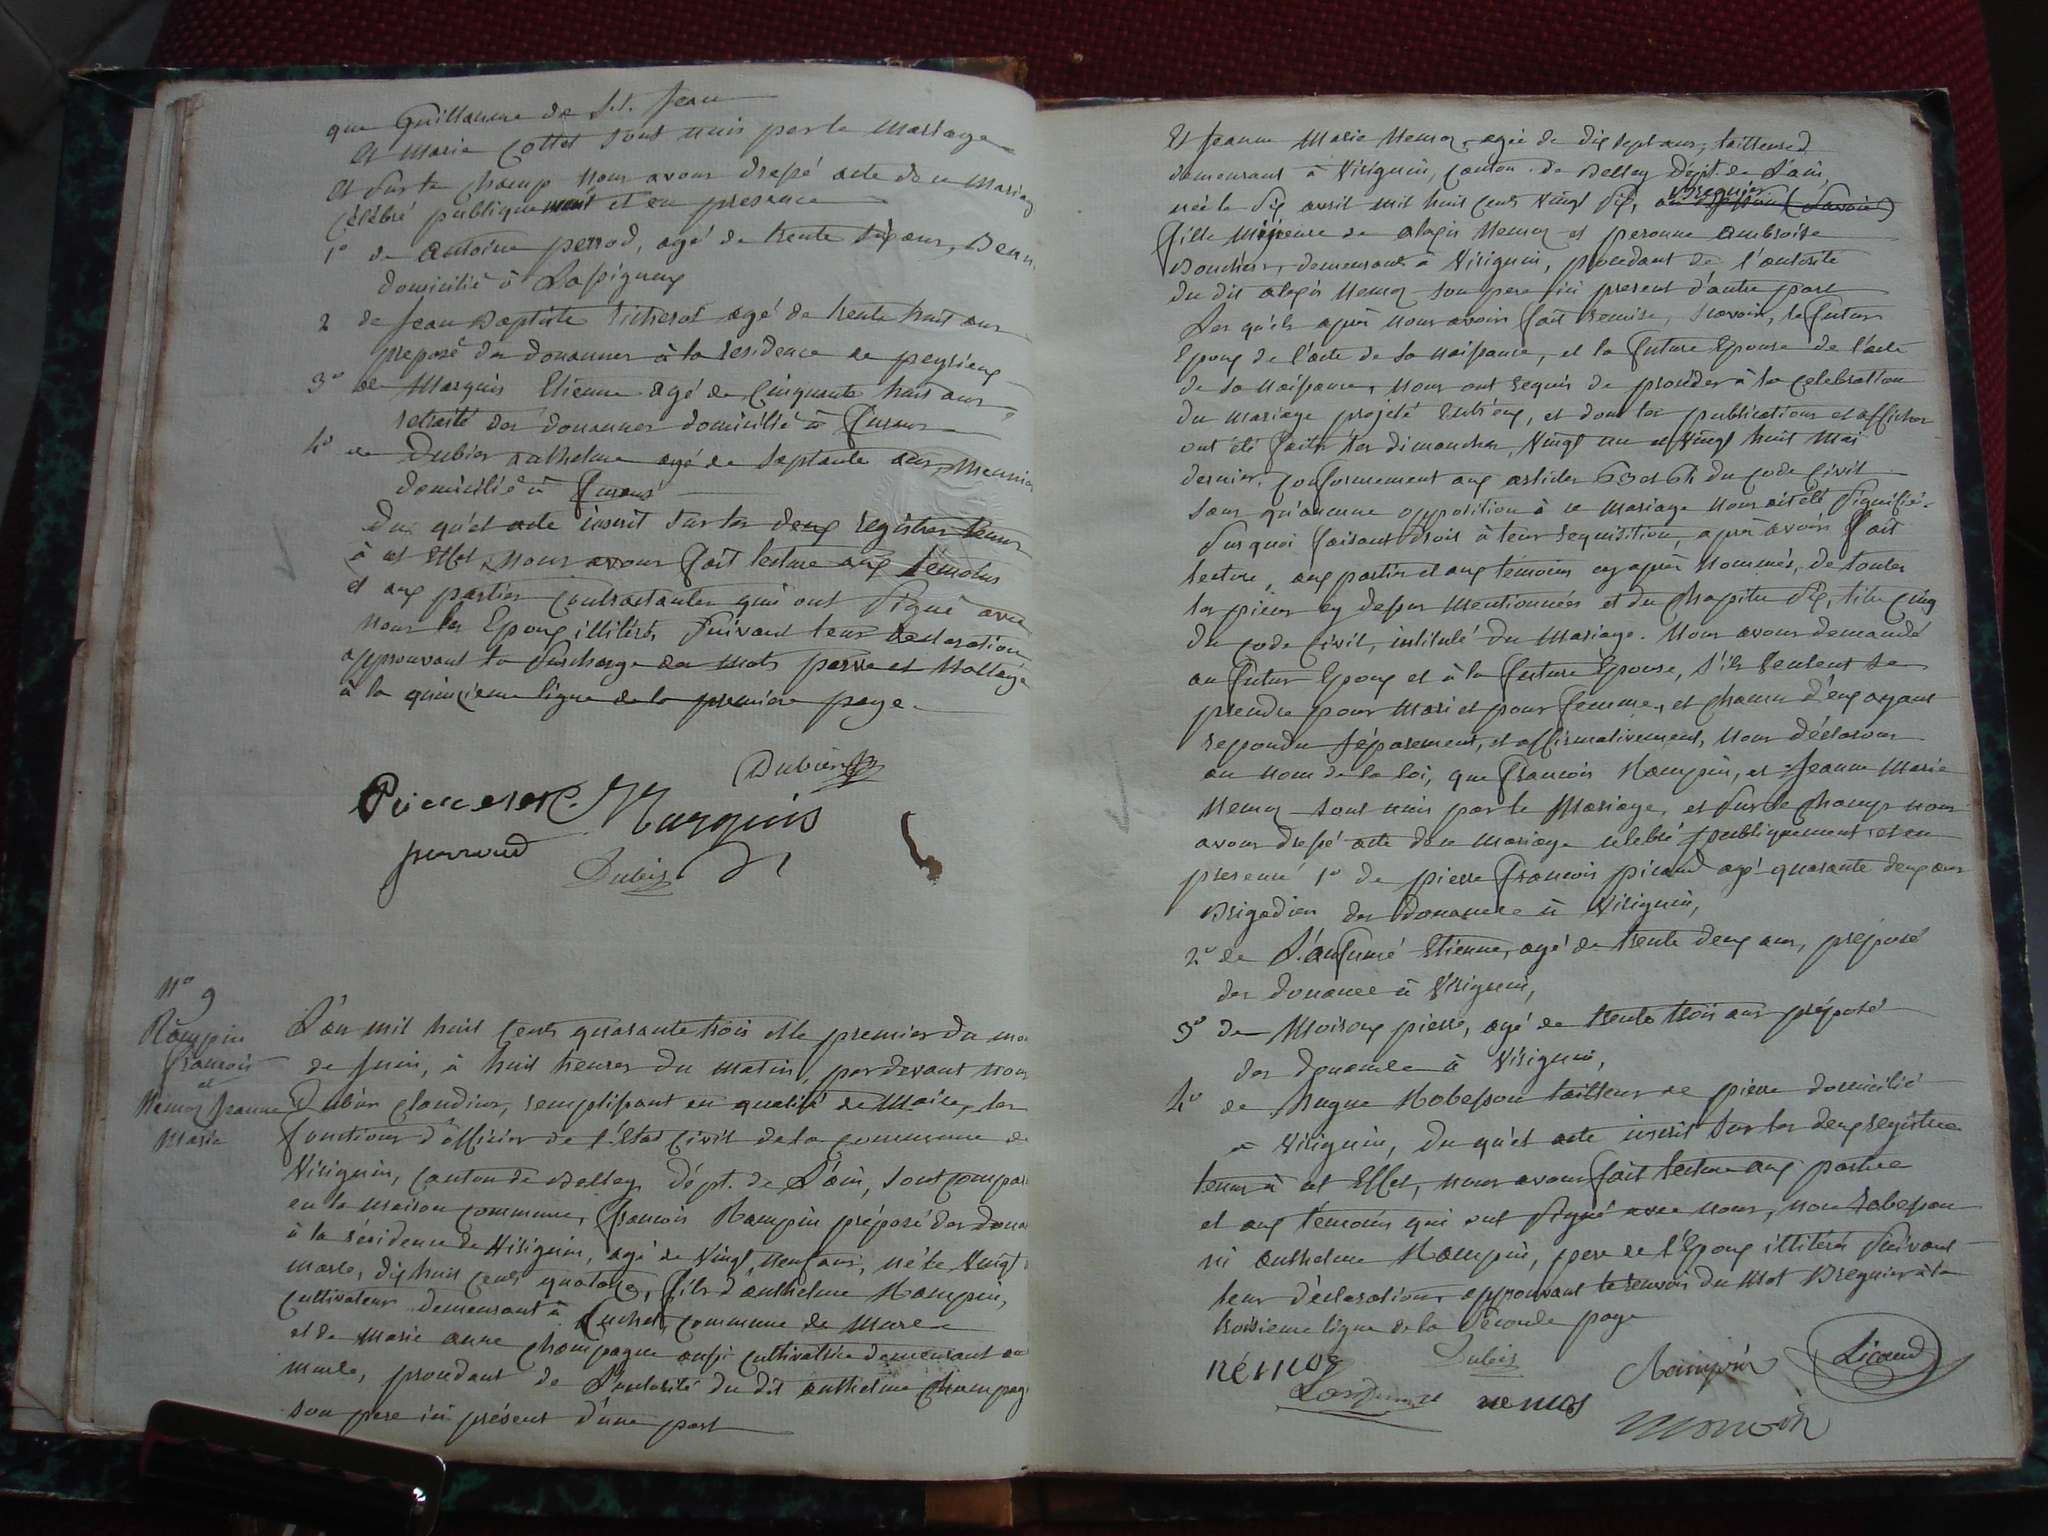 que Guillaume de St. Jean
Et Marie Cottet sont unis par le mariage
Et sur le champ nous avons dressé acte de ce mariag
célébré publiquement et en presence
1° de Antoine perrod, agé de trente six ans,
domicilié à
2 de Jean Baptiste agé de trente huit ans
preposé des douannes à la residence de peyrieux
3° de Marquis Etienne agé de Cinquante huit ans,
retraité des douannes domicilié à
4° de Dubier anthelme agé de septante ans,
domicilié à
Du qu'el acte inscrit sur les deux registres tenus
à cet effet, nous avons fait lecture aux témoins
et aux parties contractantes qui ont signé avec
nous les Epoux illitérés suivant leur declaration
approuvant la surcharge des mots et
à la quinzieme ligne de la premiere page.
Dubier
Marquis
perroud
Dubier
N° 9
Rampin
françois
et
Nemoz Jeanne
Marie
L'an mil huit cents quarante trois et le premier du mo
de Juin, à huit heures du matin, par devant nous
Dubier Claudius, remplissant en qualité de Maire, les
fonctions d'officier de l'Etat Civil de la commune de
Virignin, canton de Belley Dépt. de L'ain, sont compar
en la maison commune, francois Rampin préposé des doua
à la résidence de Virignin, agé de vingt neuf ans, né le vingt
mars, dix huit cents quatorze, fils d'anthelme Rampin,
cultivateur demeurant à commune de
et de Marie anne champagne aussi cultivatrice demeurant au
procedant de L'autorité du dit anthelme champag
son pere ici présent d'une part
Et Jeanne Marie Nemoz, agée de dix sept ans, tailleuse
demeurant à Virignin, canton de Belley Dépt. de L'ain,
née le six avril mil huit cents vingt six, Bregnier
fille mineure de alexis Nemoz et peronne ambroise
demeurant à Virignin, procedant de l'autorité
du dit alexis Nemoz son pere ici present d'autre part
Les qu'els après nous avoir fait remise, scavoir, le futur
Epoux de l'acte de sa naissance, et la future Epouse de l'acte
de sa naissance, nous ont requis de proceder à la celebration
du mariage projeté entr'eux, et dont les publications et affiches
ont été faites les dimanches, vingt un et vingt huit Mai
dernier, conformement aux articles 63 et 64 du code civil
sans qu'aucune opposition à ce mariage nous ait été signifié.
Sur quoi faisant droit à leur requisition, après avoir fait
lecture, aux parties et aux témoins cy après nommés, de toutes
les pieces cy dessus mentionnées et du chapitre six, titre cinq
du code civil, intitulé du mariage. Nous avons demandé
au futur Epoux et à la future Epouse, s'ils veulent se
prendre pour mari et pour femme, et chacun d'eux ayant
repondu séparement, et affirmativement, nous déclarons
au nom de la loi, que francois Rampin, et Jeanne Marie
Nemoz sont unis par le Mariage, et sur le champ nous
avons dressé acte de ce mariage celebré publiquement et en
presence 1° de pierre francois picaud agé quarante deux ans
Brigadier des douanes à Virignin,
2° de L'anfumé Etienne, agé de trente deux ans, préposé
des douanes à Virignin,
3° de Moiroux pierre, agé de trente trois ans préposé
des douanes à Virignin,
4° de hugue Robesson tailleur de pierre domicilié
à Virignin, du qu'el acte inscrit sur les deux registres
tenus à cet Effet, nous avons fait lecture aux parties
et aux témoins qui ont signé avec nous, non robesson
ni anthelme Rampin, pere de l'Epoux illitérés suivant
leur déclaration, approuvant le renvoi du mot Bregnier à la
troisieme ligne de la seconde page
némoz
Dubier
Rampin
Picaud
nemos